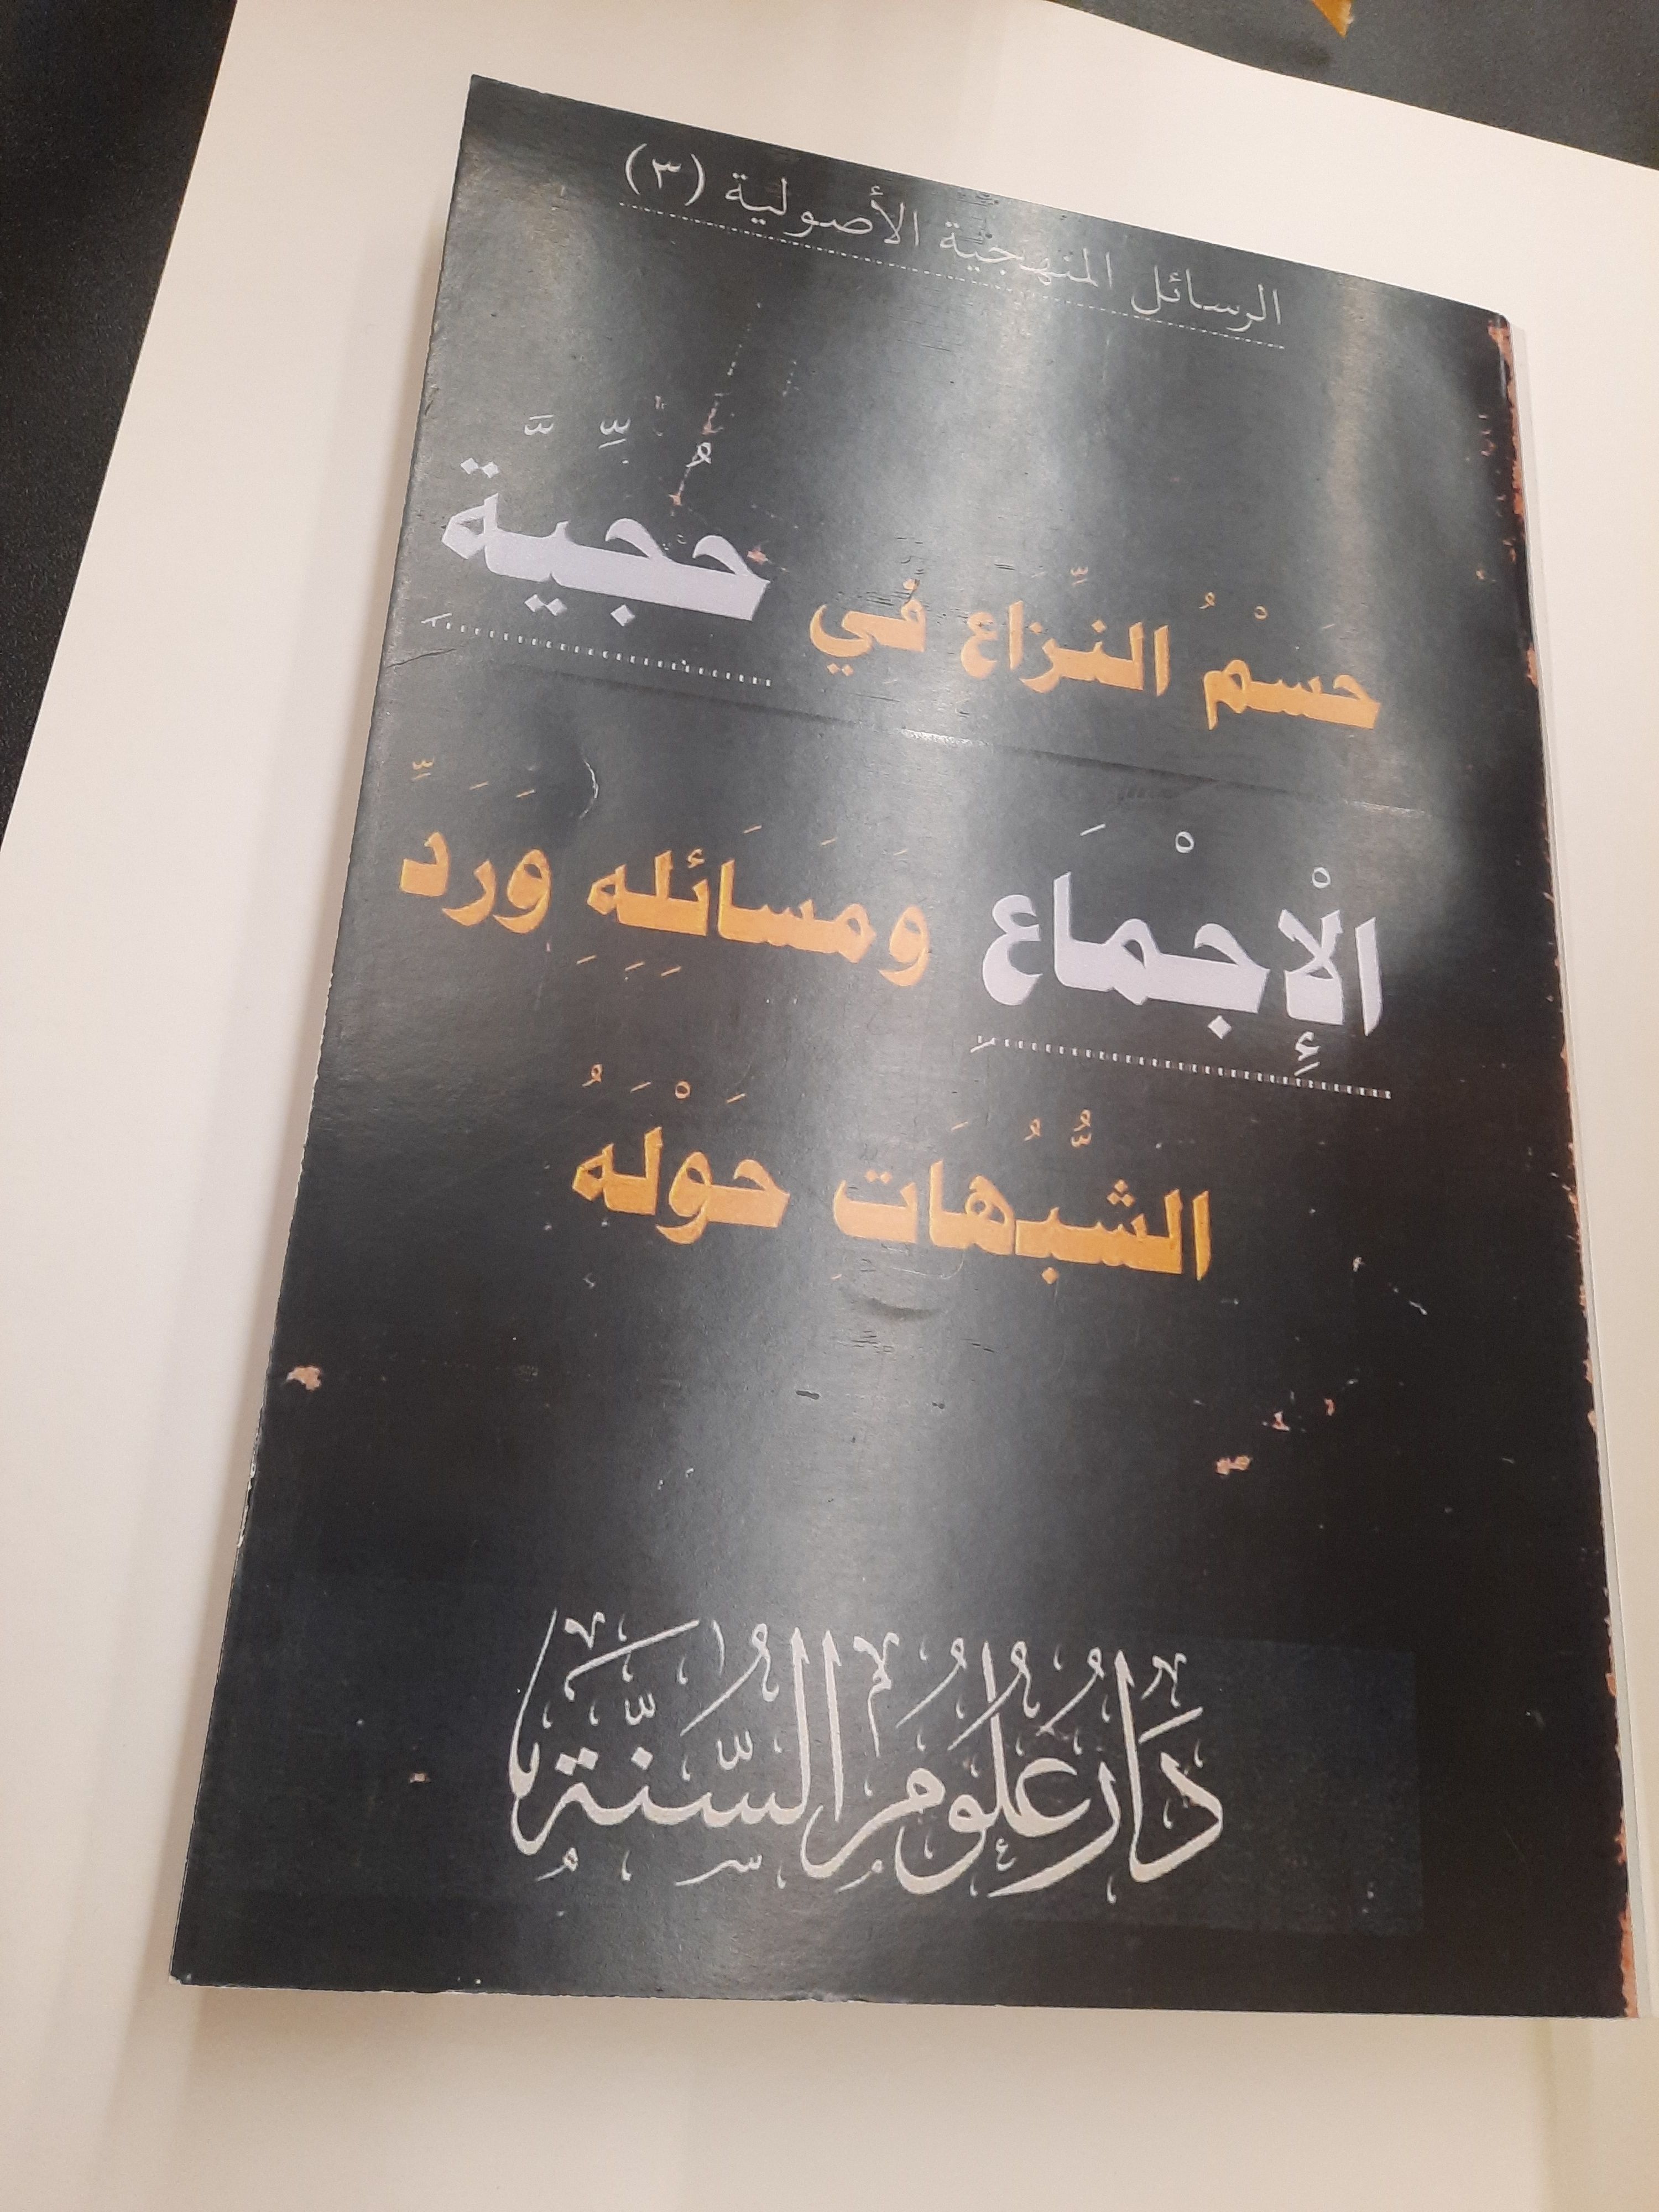 الرسائل المنهجية الأصولية (٣)
حَسْمُ النِّزَاع فِي حُجِّيَّةِ
الْإِجْمَاعِ وَمَسَائلِهِ وَرَدِّ
الشُّبُهَاتِ حَوْلَهُ
دَارُ عُلُومِ السُّنَّة